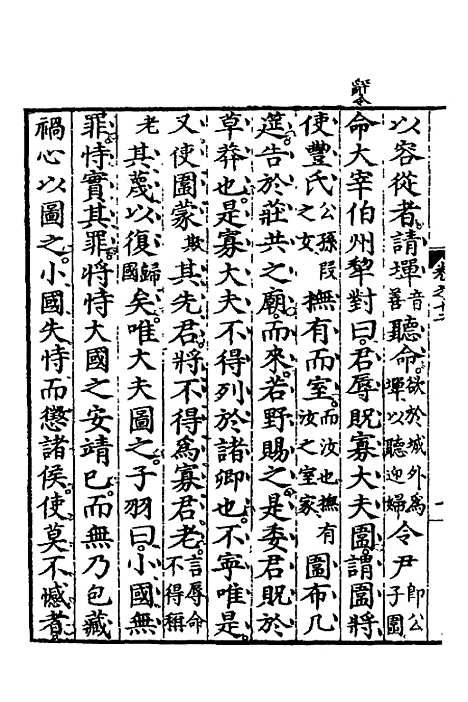 辭令
卷之十二
以容從者請墠音善聽命欲於城外爲墠以聽迎婦令尹即公子圍
命大宰伯州犂對曰君辱貺寡大夫圍謂圍將
使豐氏公孫段之女撫有而室而汝也撫有汝之室家圍布几
筵告於莊共之廟而來若野賜之是委君貺於
草莽也是寡大夫不得列於諸卿也不寧唯是
又使圍蒙欺其先君將不得爲寡君老言辱命不得稱
老其蔑以復歸國矣唯大夫圖之子羽曰小國無
罪恃實其罪將恃大國之安靖已而無乃包藏
禍心以圖之小國失恃而懲諸侯使莫不憾者